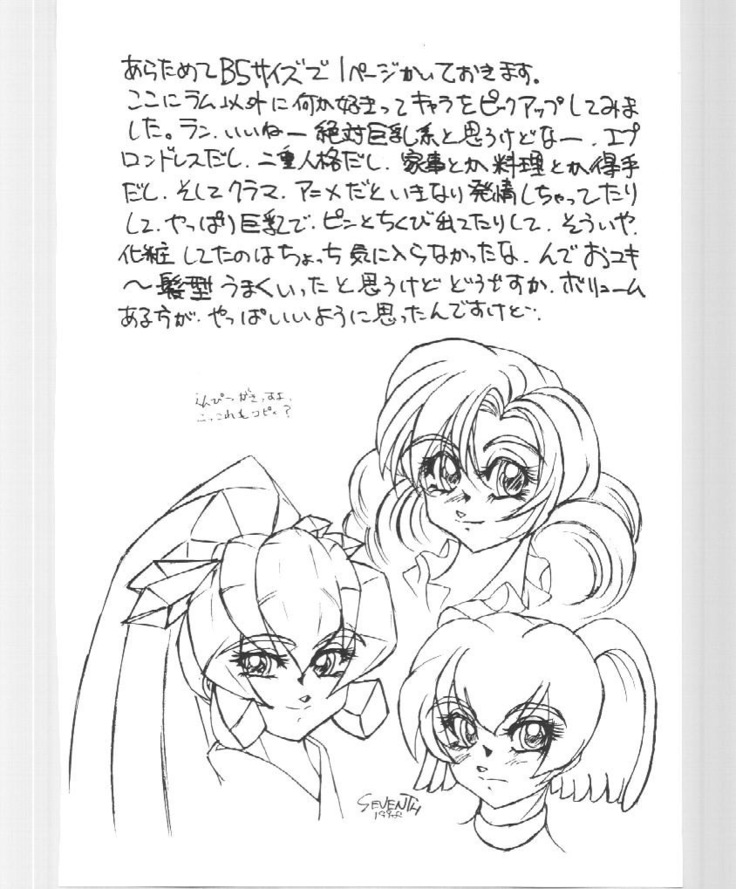 あらためてB5サイズで1ページかいておきます。
ここにラム以外に何か好きってキャラをピックアップしてみま
した。ラン、いいねー絶対巨乳系と思うけどなー、エプ
ロンドレスだし、二重人格だし、家事とか料理とか得手
だし、そしてクラマ、アニメだといきなり発情しちゃってたり
して、やっぱり巨乳で、ピンとちくび出てたりして、そういや、
化粧してたのはちょっち気に入らなかったな、んでおユキ
〜髪型うまくいったと思うけどどうですか、ボリューム
ある方が、やっぱいいように思ったんですけど…
えんぴつがきっすよ、
これもコピィ?
SEVENTH